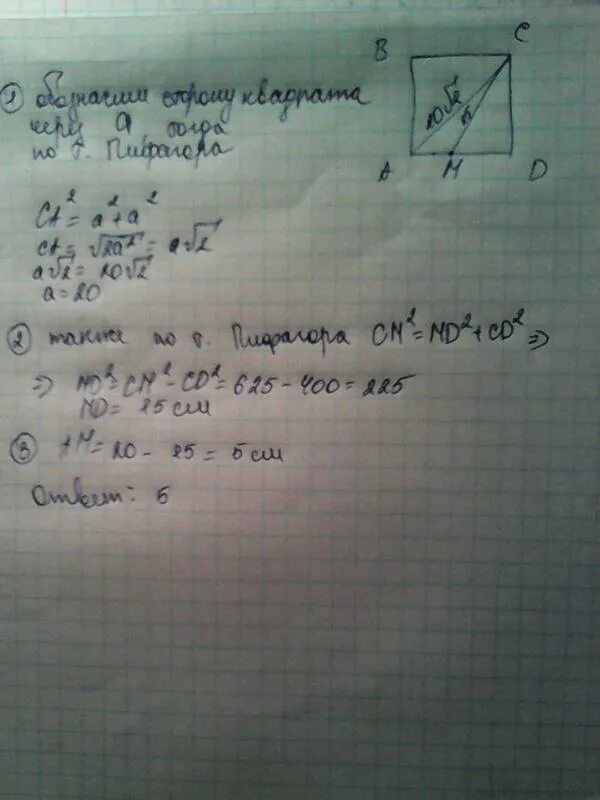 B
C
20√2
A
M
D
1 обозначим сторону квадрата
через a, тогда
по т. Пифагора
CA² = a² + a²
CA = √2a² = a√2
a√2 = 20√2
a = 20
2 также по т. Пифагора CM² = MD² + CD² ⇒
⇒ MD² = CM² - CD² = 625 - 400 = 225
MD = 15 см
3 AM = 20 - 15 = 5 см
Ответ: 5